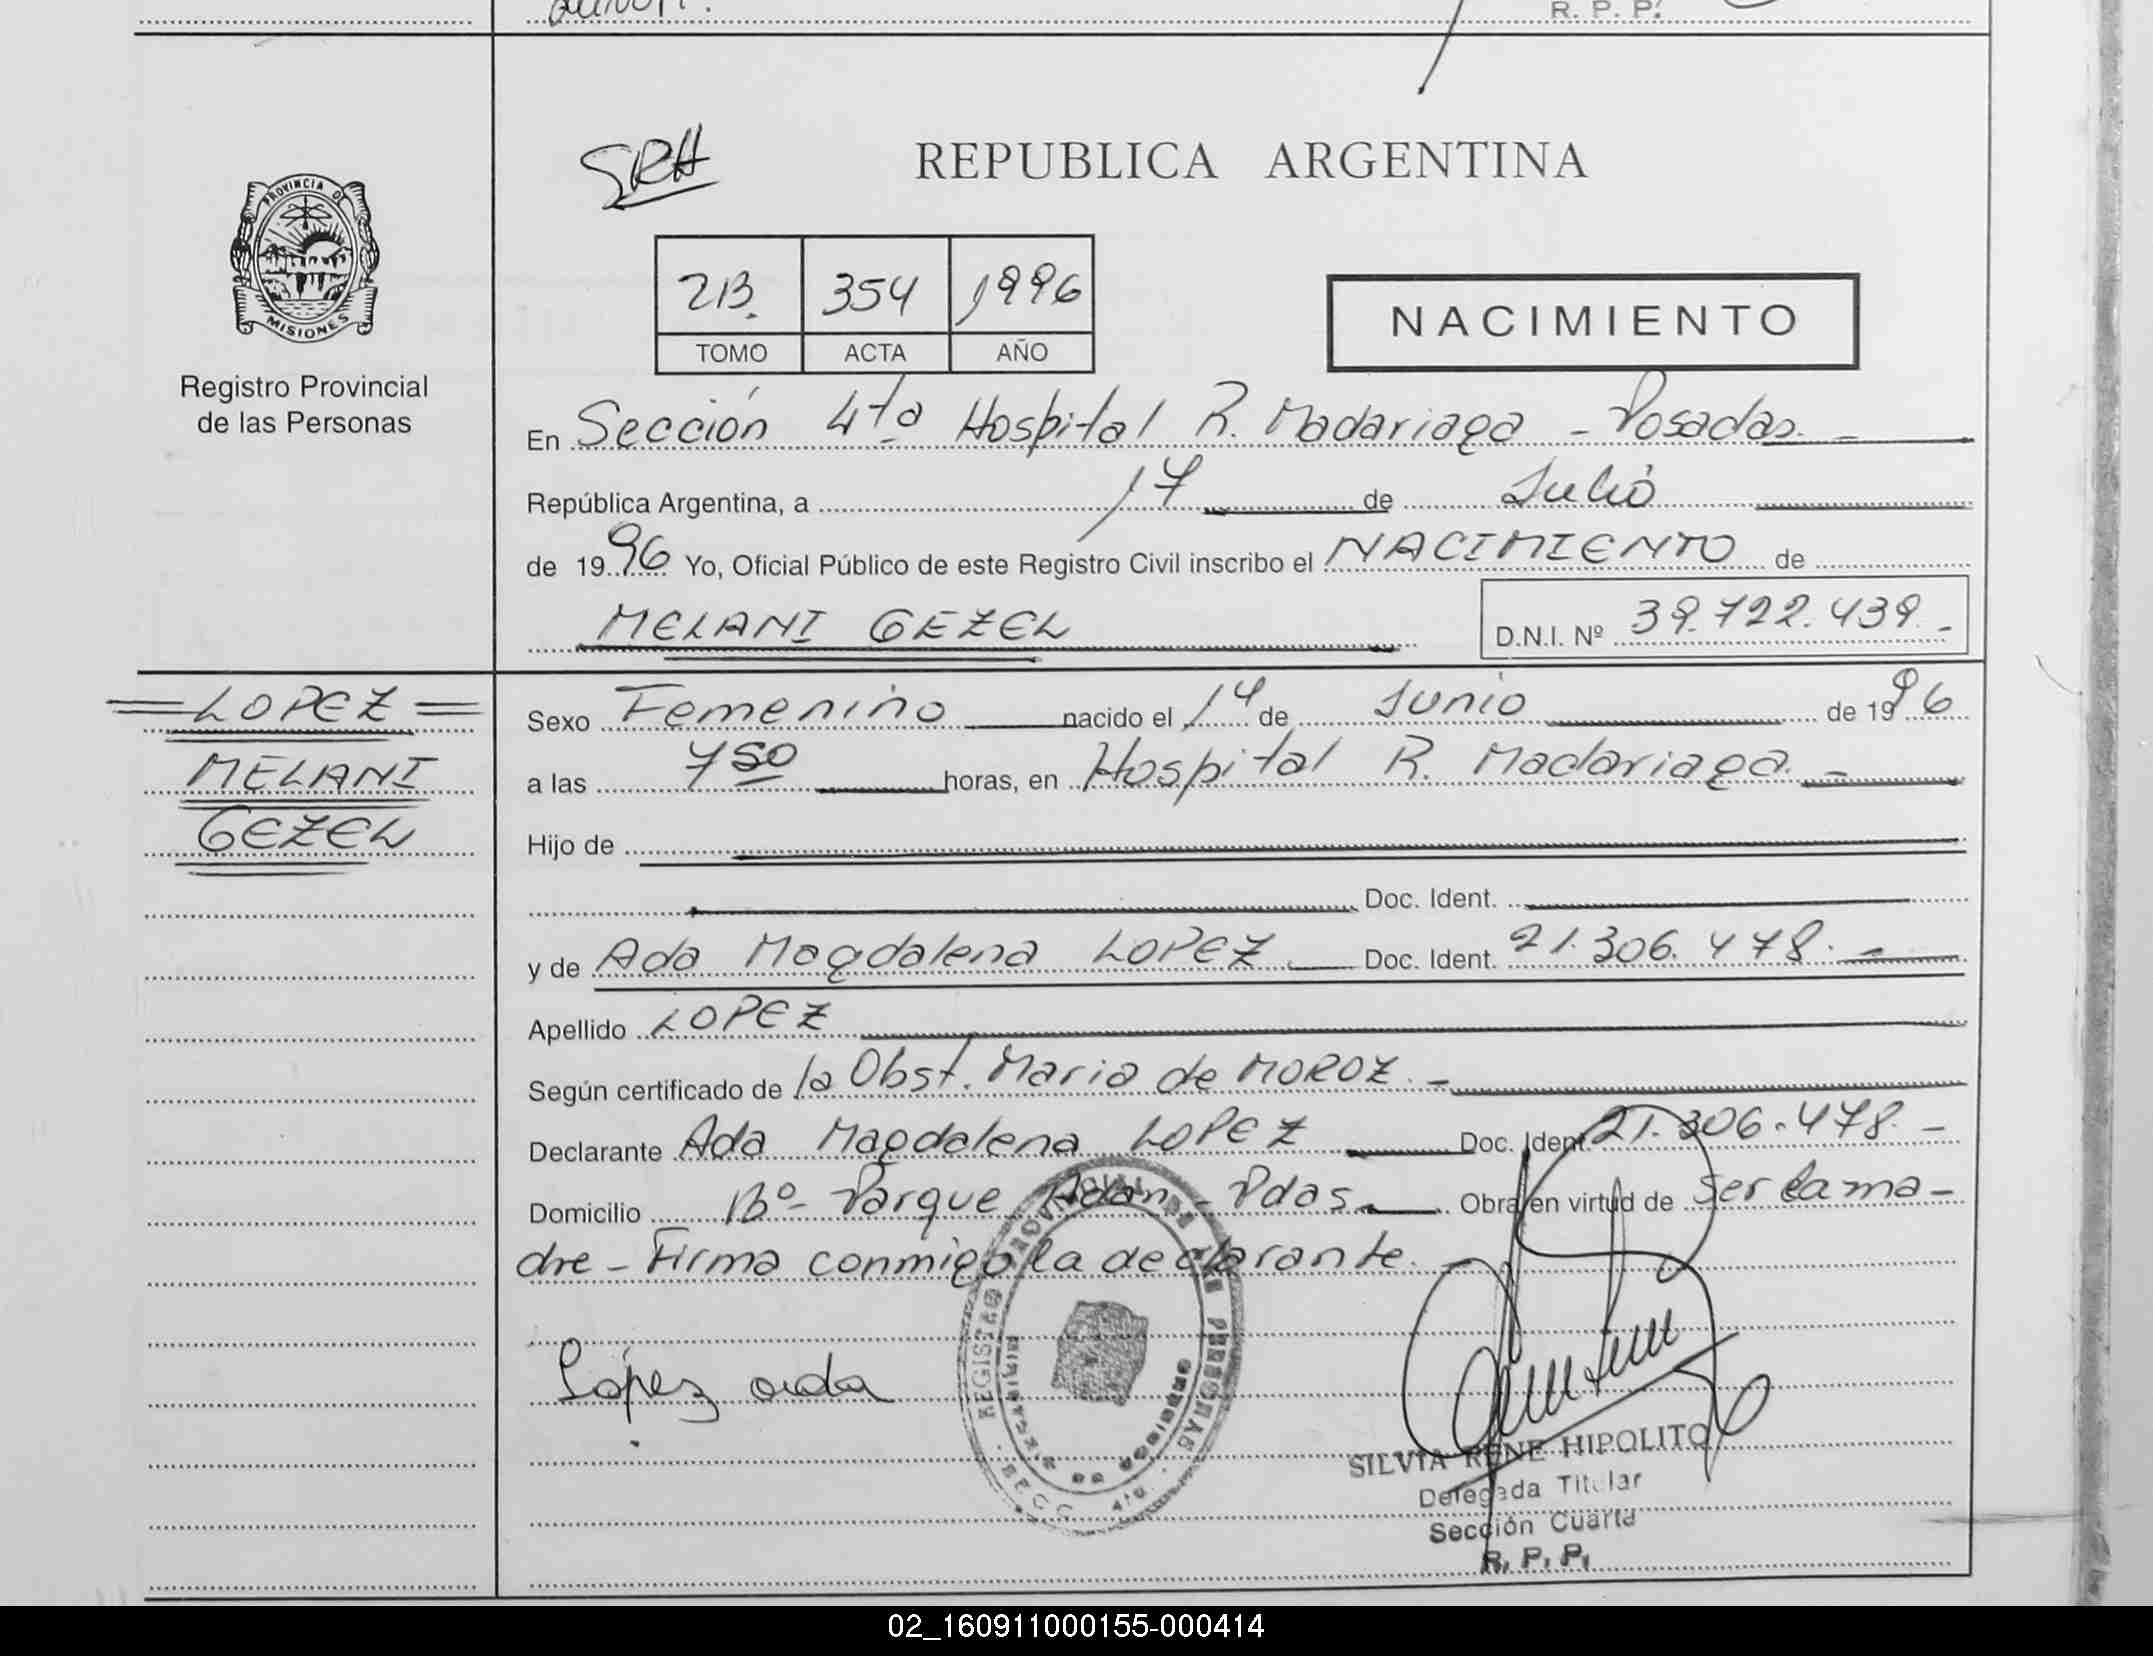 R. P. P.
SRH
REPUBLICA ARGENTINA
PROVINCIA DE
MISIONES
Registro Provincial
de las Personas
2B. 354 1996
TOMO ACTA AÑO
NACIMIENTO
En Sección 4ta Hospital R. Madariaga - Posadas. -
República Argentina, a 17 de Julio
de 1996 Yo, Oficial Público de este Registro Civil inscribo el NACIMIENTO de
MELANI GEZEL D.N.I. Nº 39.722.439.-
=LOPEZ=
MELANI
GEZEL
Sexo Femenino nacido el 14 de Junio de 1996
a las 750 horas, en Hospital R. Madariaga. -
Hijo de
Doc. Ident.
y de Ada Magdalena LOPEZ. Doc. Ident. 21.306.478. -
Apellido LOPEZ
Según certificado de la Obst. Maria de MOROZ. -
Declarante Ada Magdalena LOPEZ Doc. Ident. 21.306.478. -
Domicilio Bº- Parque Adan - Pdas. Obra en virtud de ser la ma-
dre - Firma conmigo la declarante.
López ada
REGISTRO PROVINCIAL DE LAS PERSONAS
SECC. 4ta.
SILVIA RENE HIPOLITO
Delegada Titular
Sección Cuarta
R. P. P.
02_160911000155-000414